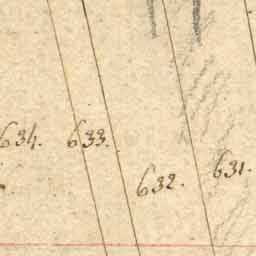 634. 633. 632. 631.